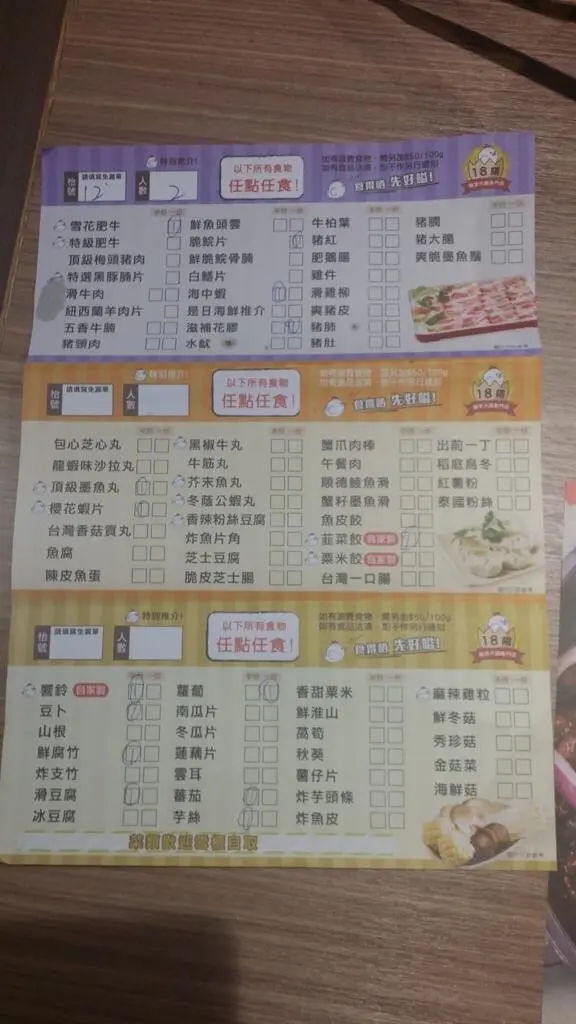 特別推介!
枱號
請填寫免漏單
12
人數
2
以下所有食物
任點任食!
如有浪費食物，需另加$50/100g
如有食品沽清，恕不作另行通知
食得晒 先好嗌!
18隣
雪花肥牛
特級肥牛
頂級梅頭豬肉
特選黑豚腩片
滑牛肉
紐西蘭羊肉片
五香牛腩
豬頸肉
鮮魚頭雲
脆鯇片
鮮脆鯇骨腩
白鱔片
海中蝦
是日海鮮推介
滋補花膠
水魷
牛柏葉
豬紅
肥鵝腸
雞件
滑雞柳
爽豬皮
豬肺
豬肚
豬膶
豬大腸
爽脆墨魚鬚
特別推介!
枱號
請填寫免漏單
人數
以下所有食物
任點任食!
如有浪費食物，需另加$50/100g
如有食品沽清，恕不作另行通知
食得晒 先好嗌!
18隣
包心芝心丸
龍蝦味沙拉丸
頂級墨魚丸
櫻花蝦片
台灣香菇貢丸
魚腐
陳皮魚蛋
黑椒牛丸
牛筋丸
芥末魚丸
冬蔭公蝦丸
香辣粉絲豆腐
炸魚片角
芝士豆腐
脆皮芝士腸
蟹爪肉棒
午餐肉
順德鯪魚滑
蟹籽墨魚滑
魚皮餃
韮菜餃 自家製
粟米餃 自家製
台灣一口腸
出前一丁
稻庭烏冬
紅薯粉
泰國粉絲
特別推介!
枱號
請填寫免漏單
人數
以下所有食物
任點任食!
如有浪費食物，需另加$50/100g
如有食品沽清，恕不作另行通知
食得晒 先好嗌!
18隣
響鈴 自家製
豆卜
山根
鮮腐竹
炸支竹
滑豆腐
冰豆腐
蘿蔔
南瓜片
冬瓜片
蓮藕片
雲耳
蕃茄
芋絲
香甜粟米
鮮淮山
萵筍
秋葵
薯仔片
炸芋頭條
炸魚皮
麻辣雞粒
鮮冬菇
秀珍菇
金菇菜
海鮮菇
菜類歡迎雪櫃自取